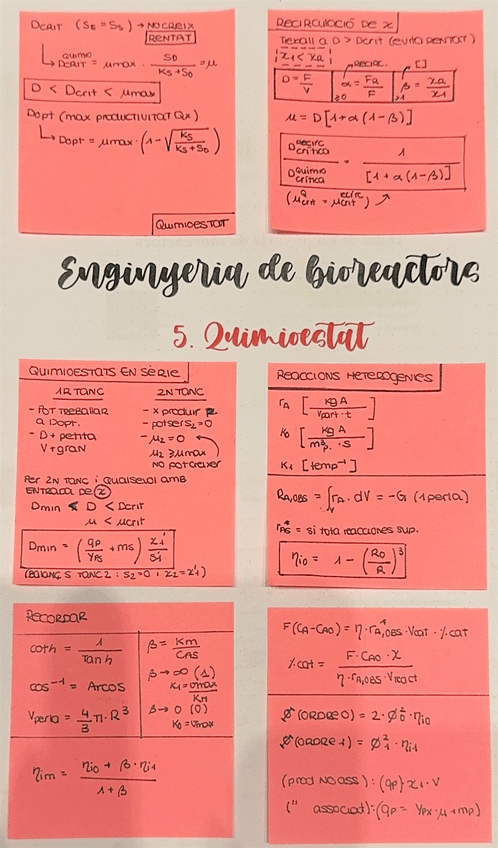 Dcrit (SE = SS) → NO CREIX
RENTAT
Dcrit químio = μmax · S0 / (KS + S0) = μ
D < Dcrit < μmax
Dopt (max productivitat Qx)
Dopt = μmax · (1 - √(KS / (KS + S0)))
Quimioestat
Recirculació de x
Treball a D > Dcrit (evita rentat)
x1 < xR
D = F/V
Recirc. α = FR/F ≥0
[ ] β = xR/x1 >1
μ = D[1 + α(1-β)]
Dcrítica recirc / Dcrítica quimio = 1 / [1 + α(1-β)]
(μcrit Q = μcrit recirc)
Enginyeria de bioreactors
5. Quimioestat
Quimioestats en sèrie
1R TANC
- Pot treballar
a Dopt.
- D + petita
V + gran
2N TANC
- x produir P
- pot ser S2 = 0
- μ2 = 0
μ2 ≥ μmax
NO pot créixer
Per 2N tanc i qualsevol amb
entrada de x
Dmin < D < Dcrit
μ < μcrit
Dmin = (qp / YPS + ms) x1' / S1'
(Balanç S tanc 2: S2=0 i x2=x1')
Reaccions heterogènies
rA [kg A / Vpart · t]
K0 [kg A / m³p. · s]
K1 [temp⁻¹]
RA,OBS = ∫ rA · dV = -G (1 perla)
rAS* = si tota reacciones sup.
ηi0 = 1 - (R0 / R)³
Recordar
coth = 1 / Tanh
cos⁻¹ = Arcos
Vperla = 4/3 π · R³
β = Km / CAS
β → ∞ (1)
K1 = vmax / Km
β → 0 (0)
K0 = vmax
ηim = (ηi0 + β · ηi1) / (1 + β)
F(CA - CA0) = η · rA,OBS* · Vcat · %cat
%cat = F · CA0 · x / (η · rA,OBS · Vreact)
Ø (ordre 0) = 2 · Ø0² · ηi0
Ø (ordre 1) = Ø1² · ηi1
(prod no ass): (qp) x1 · V
(" associat): (qp = YPX · μ + mp)